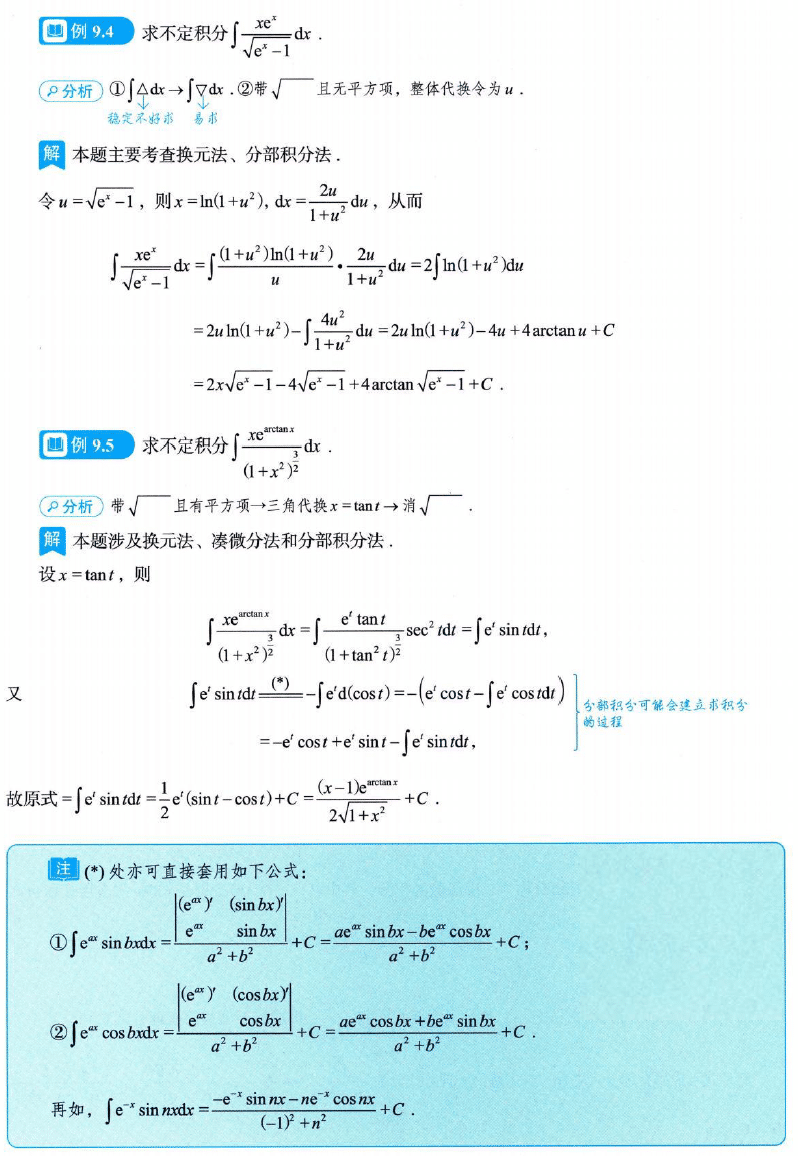 例 9.4 求不定积分∫ xeˣ/√(eˣ−1) dx .
分析 ①∫△dx→∫▽dx .②带√‾且无平方项，整体代换令为 u .
稳定不好求 易求
解 本题主要考查换元法、分部积分法 .
令 u =√(eˣ−1)，则 x = ln(1+u²), dx = 2u/(1+u²) du，从而
∫ xeˣ/√(eˣ−1) dx = ∫ (1+u²)ln(1+u²)/u · 2u/(1+u²) du = 2∫ln(1+u²)du
= 2u ln(1+u²) − ∫ 4u²/(1+u²) du = 2u ln(1+u²) − 4u + 4 arctan u + C
= 2x√(eˣ−1) − 4√(eˣ−1) + 4 arctan √(eˣ−1) + C .
例 9.5 求不定积分∫ xe^(arctan x)/(1+x²)^(3/2) dx .
分析 带√‾且有平方项→三角代换 x = tan t → 消√‾ .
解 本题涉及换元法、凑微分法和分部积分法 .
设 x = tan t，则
∫ xe^(arctan x)/(1+x²)^(3/2) dx = ∫ eᵗ tan t/(1+tan² t)^(3/2) sec² tdt = ∫eᵗ sin tdt,
又 ∫eᵗ sin tdt =(*)= −∫eᵗd(cos t) = −(eᵗ cos t − ∫eᵗ cos tdt)
= −eᵗ cos t + eᵗ sin t − ∫eᵗ sin tdt,
分部积分可能会建立求积分
的过程
故原式 = ∫eᵗ sin tdt = 1/2 eᵗ(sin t − cos t) + C = (x−1)e^(arctan x)/(2√(1+x²)) + C .
注 (*) 处亦可直接套用如下公式：
①∫e^(ax) sin bxdx = |(e^(ax))′ (sin bx)′; e^(ax) sin bx|/(a²+b²) + C = (ae^(ax) sin bx − be^(ax) cos bx)/(a²+b²) + C；
②∫e^(ax) cos bxdx = |(e^(ax))′ (cos bx)′; e^(ax) cos bx|/(a²+b²) + C = (ae^(ax) cos bx + be^(ax) sin bx)/(a²+b²) + C .
再如，∫e^(−x) sin nxdx = (−e^(−x) sin nx − ne^(−x) cos nx)/((−1)²+n²) + C .